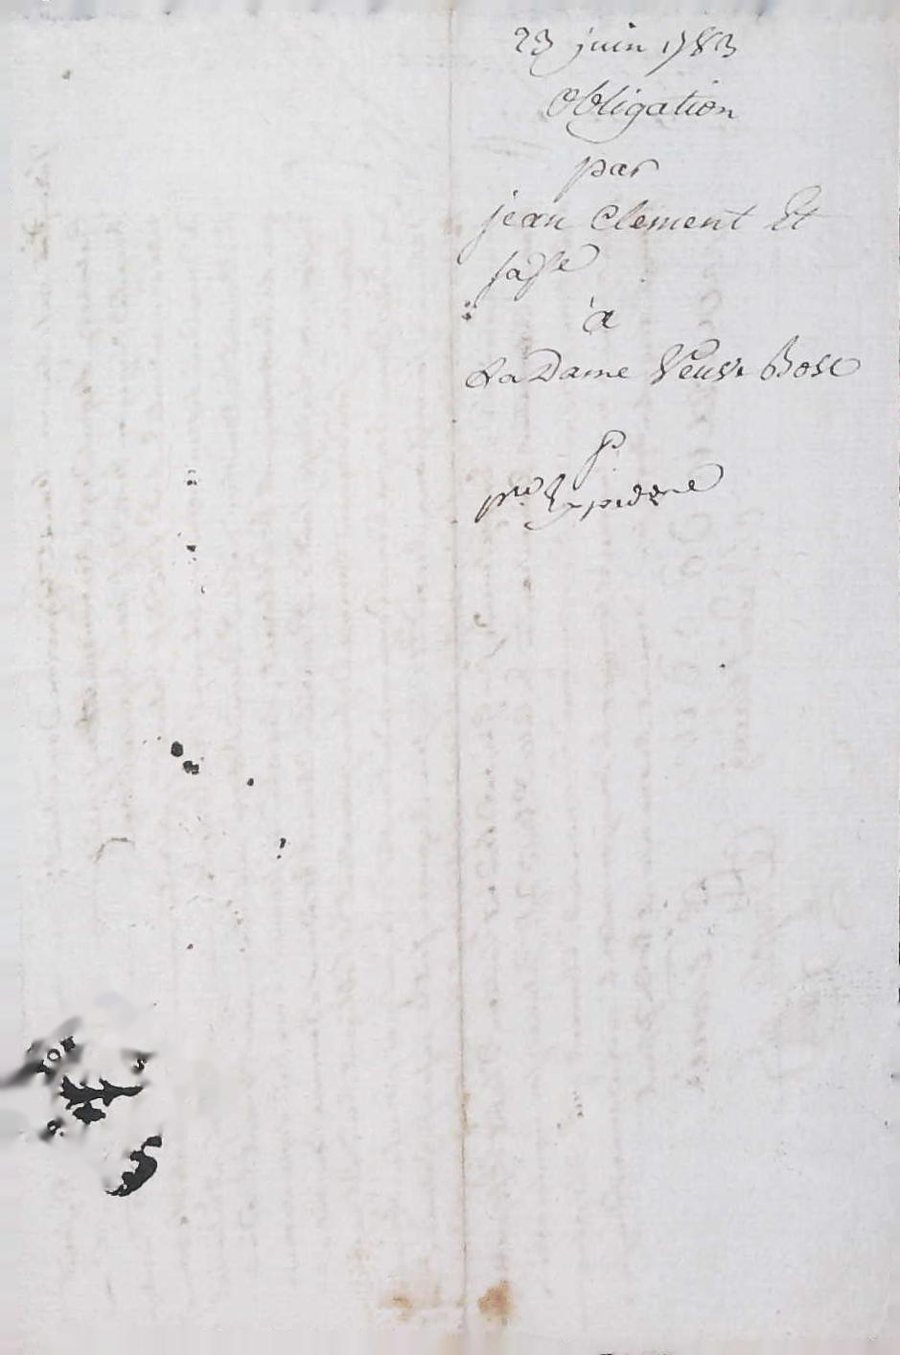 23 juin 1783
Obligation
par
jean Clement Et
sasse
à
La Dame Veuve Bosc
pre Expedne